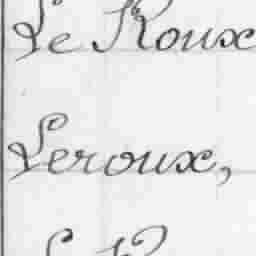 Le Roux
Leroux,